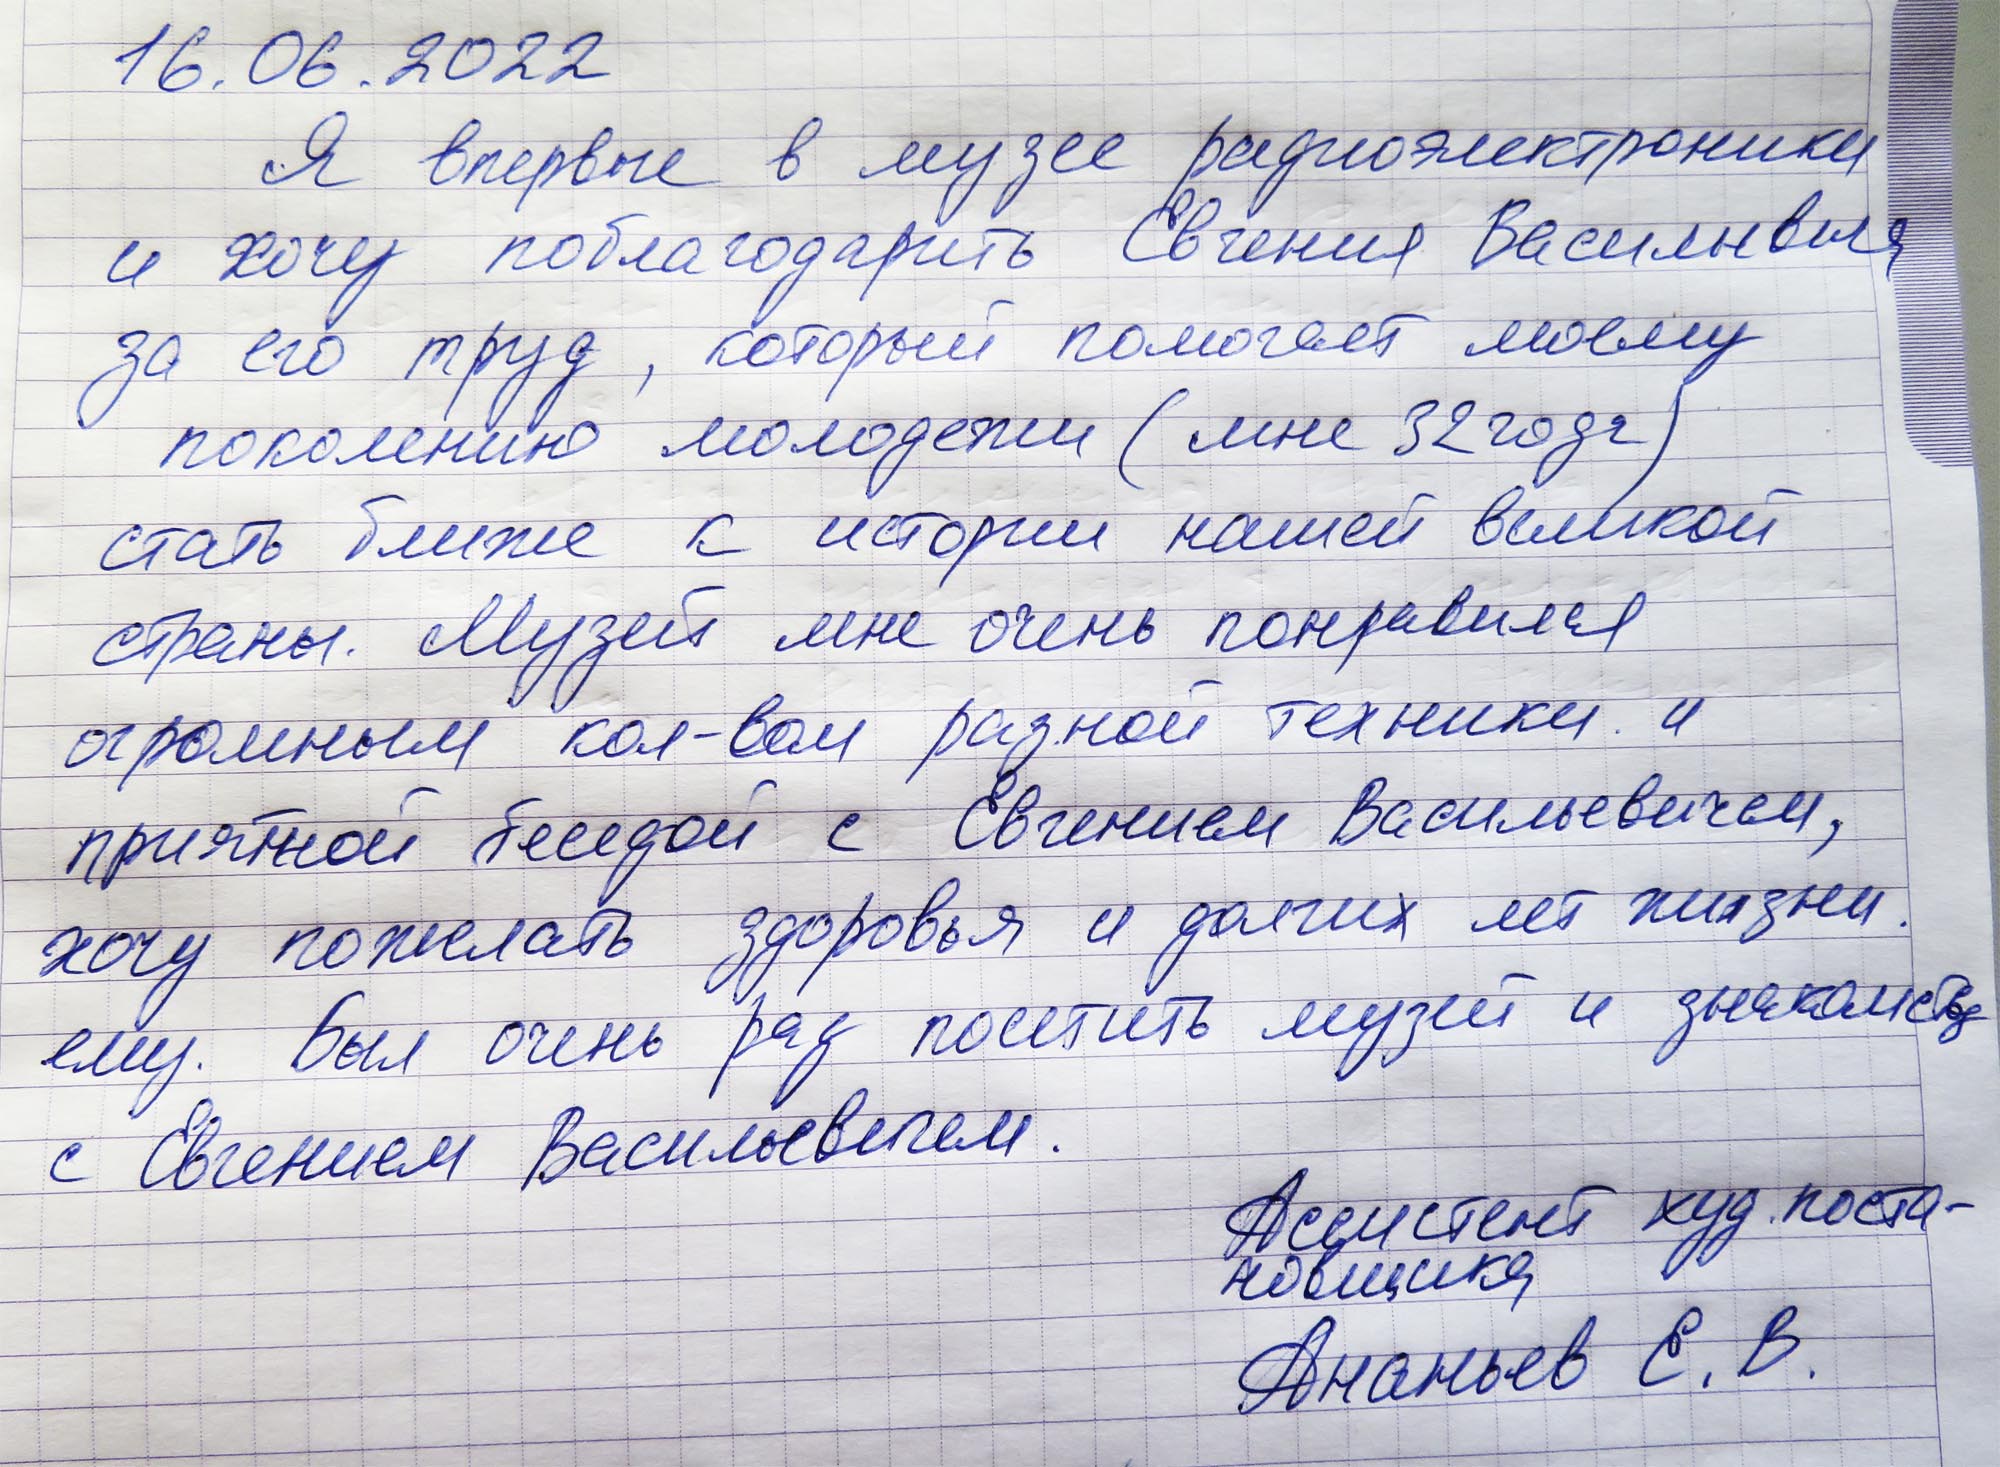 16.06.2022
Я впервые в музее радиоэлектроники
и хочу поблагодарить Евгения
за его труд, который помогает моему
поколению молодежи (мне 32 года)
стать ближе к истории нашей великой
страны. Музей мне очень понравился
огромным кол-вом разной техники. и
приятной беседой с Евгением Васильевичем,
хочу пожелать здоровья и долгих лет жизни.
ему. Был очень рад посетить музей и
с Евгением Васильевичем.
Ассистент худ. поста-
новщика
Ананьев Е. В.